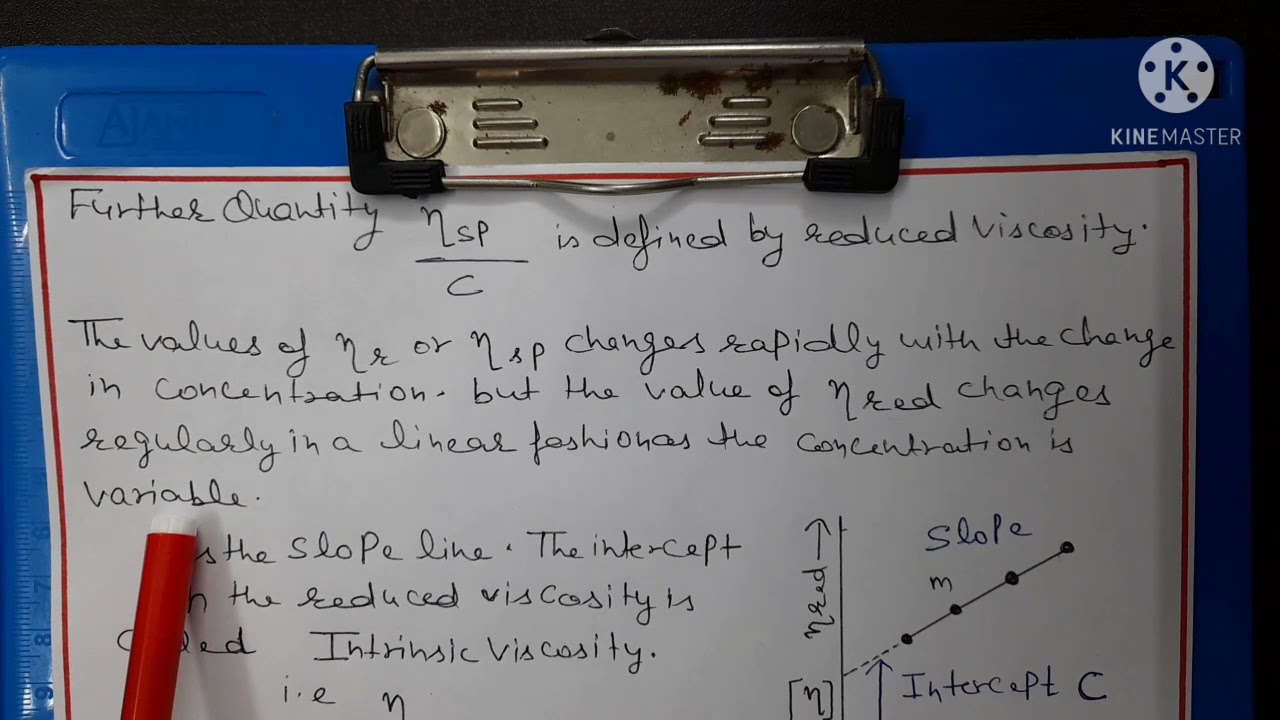 AJAN
K
KINEMASTER
Further Quantity ηsp / C is defined by reduced viscosity.
The values of ηr or ηsp changes rapidly with the change
in concentration. but the value of ηred changes
regularly in a linear fashion as the concentration is
variable.
the slope line. The intercept
the reduced viscosity is
Intrinsic viscosity.
i.e η
ηred →
Slope
m
[η]
Intercept C
6
7
8
9